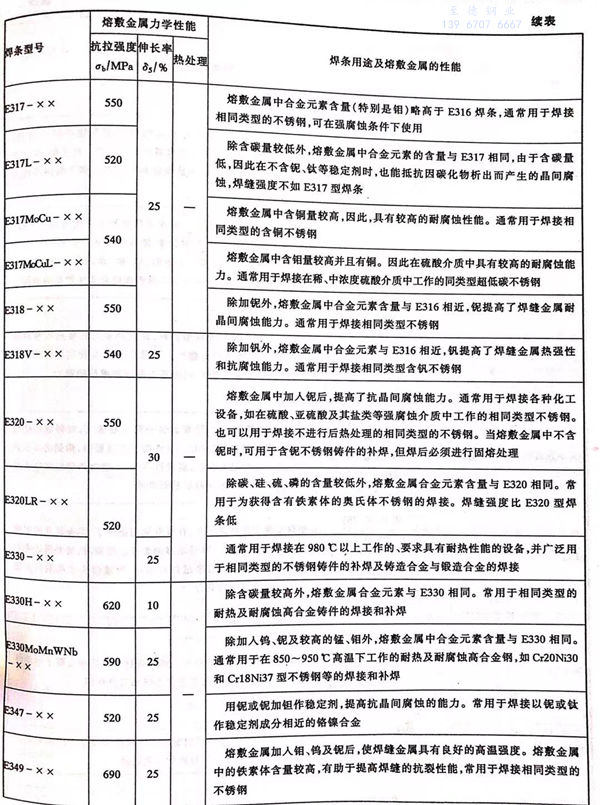 至德钢业
139 6707 6667
续表
焊条型号
熔敷金属力学性能
抗拉强度
σb/MPa
伸长率
δ5/%
热处理
焊条用途及熔敷金属的性能
E317-××
550
熔敷金属中合金元素含量(特别是钼)略高于E316焊条,通常用于焊接
相同类型的不锈钢,可在强腐蚀条件下使用
E317L-××
520
25
—
除含碳量较低外,熔敷金属中合金元素的含量与E317相同,由于含碳量
低,因此在不含铌、钛等稳定剂时,也能抵抗因碳化物析出而产生的晶间腐
蚀,焊缝强度不如E317型焊条
E317MoCu-××
540
熔敷金属中含铜量较高,因此,具有较高的耐腐蚀性能。通常用于焊接相
同类型的含铜不锈钢
E317MoCuL-××
熔敷金属中含钼量较高并且有铜。因此在硫酸介质中具有较高的耐腐蚀能
力。通常用于焊接在稀、中浓度硫酸介质中工作的同类型超低碳不锈钢
E318-××
550
除加铌外,熔敷金属中合金元素含量与E316相近,铌提高了焊缝金属耐
晶间腐蚀能力。通常用于焊接相同类型不锈钢
E318V-××
540
25
除加钒外,熔敷金属中合金元素与E316相近,钒提高了焊缝金属热强性
和抗腐蚀能力。通常用于焊接相同类型含钒不锈钢
E320-××
550
30
—
熔敷金属中加入铌后,提高了抗晶间腐蚀能力。通常用于焊接各种化工
设备,如在硫酸、亚硫酸及其盐类等强腐蚀介质中工作的相同类型不锈钢。
也可以用于焊接不进行后热处理的相同类型的不锈钢。当熔敷金属中不含
铌时,可用于含铌不锈钢铸件的补焊,但焊后必须进行固熔处理
E320LR-××
520
除碳、硅、硫、磷的含量较低外,熔敷金属合金元素含量与E320相同。常
用于为获得含有铁素体的奥氏体不锈钢的焊接。焊缝强度比E320型焊
条低
E330-××
25
通常用于焊接在980℃以上工作的、要求具有耐热性能的设备,并广泛用
于相同类型的不锈钢铸件的补焊及铸造合金与锻造合金的焊接
E330H-××
620
10
除含碳量较高外,熔敷金属合金元素与E330相同。常用于相同类型的
耐热及耐腐蚀高合金铸件的焊接和补焊
E330MoMnWNb
-××
590
25
—
除加入钨、铌及较高的锰、钼外,熔敷金属中合金元素含量与E330相同。
通常用于在850~950℃高温下工作的耐热及耐腐蚀高合金钢,如Cr20Ni30
和Cr18Ni37型不锈钢等的焊接和补焊
E347-××
520
25
用铌或铌加钽作稳定剂,提高抗晶间腐蚀的能力。常用于焊接以铌或钛
作稳定剂成分相近的铬镍合金
E349-××
690
25
熔敷金属加入钼、钨及铌后,使焊缝金属具有良好的高温强度。熔敷金属
中的铁素体含量较高,有助于提高焊缝的抗裂性能,常用于焊接相同类型的
不锈钢